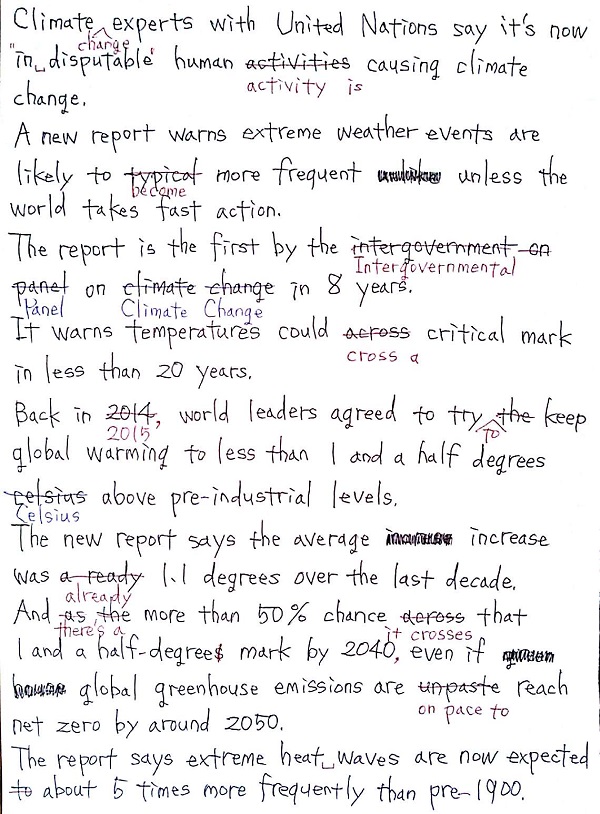 Climate experts with United Nations say it's now
change
"in disputable" human activities causing climate
activity is
change.
A new report warns extreme weather events are
likely to typical more frequent unless the
become
world takes fast action.
The report is the first by the intergovernment on
Intergovernmental
panel on climate change in 8 years.
Panel Climate Change
It warns temperatures could across critical mark
cross a
in less than 20 years.
Back in 2014, world leaders agreed to try the keep
2015 to
global warming to less than 1 and a half degrees
celsius above pre-industrial levels.
Celsius
The new report says the average increase
was a ready 1.1 degrees over the last decade.
already
And as the more than 50% chance across that
there's a it crosses
1 and a half-degrees mark by 2040, even if
global greenhouse emissions are unpaste reach
on pace to
net zero by around 2050.
The report says extreme heat waves are now expected
to about 5 times more frequently than pre-1900.